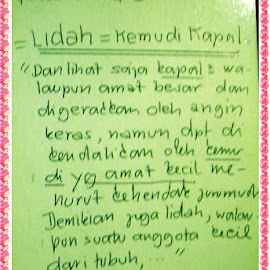 = Lidah = Kemudi Kapal.
"Dan lihat saja kapal² wa-
laupun amat besar dan
digerakkan oleh angin
keras, namun dpt di
kendalikan oleh kemu
di yg amat kecil me-
nurut kehendak jurumudi
Demikian juga lidah, walau
pun suatu anggota kecil
dari tubuh, ..."